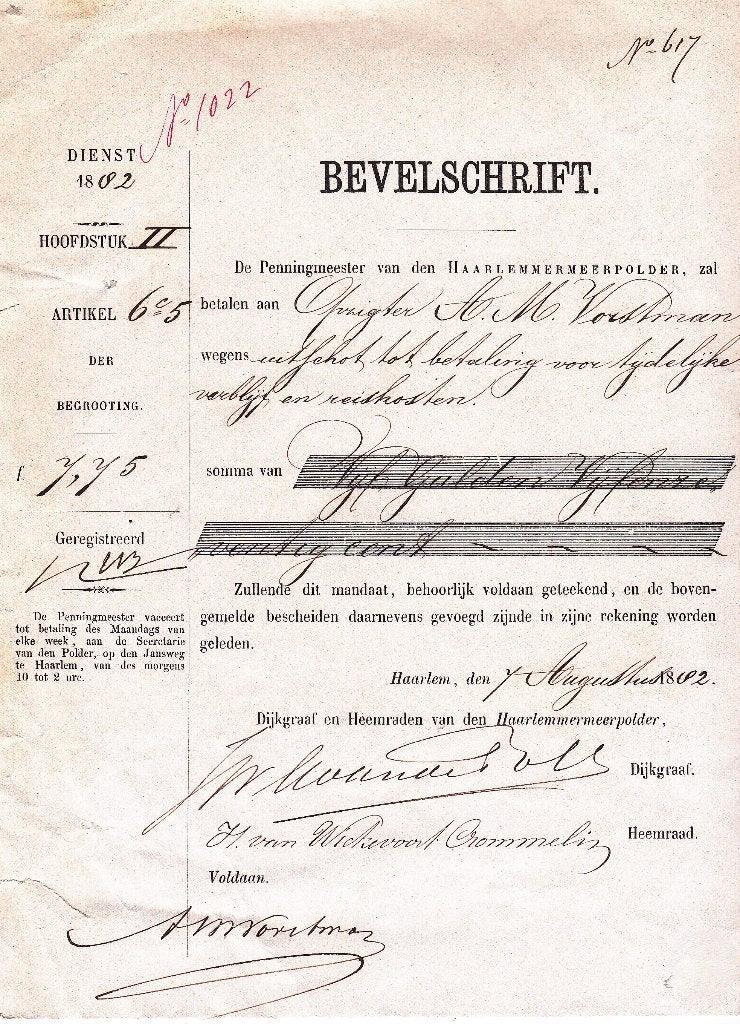 No 617
No 1022
DIENST
1882
HOOFDSTUK II
ARTIKEL 6c5
DER
BEGROOTING.
f 7,75
Geregistreerd
De Penningmeester vaceert
tot betaling des Maandags van
elke week, aan de Secretarie
van den Polder, op den Jansweg
te Haarlem, van des morgens
10 tot 2 ure.
BEVELSCHRIFT.
De Penningmeester van den HAARLEMMERMEERPOLDER, zal
betalen aan Opzigter A. M. Vorstman
wegens uitschot tot betaling voor tijdelijke
verblijf en reiskosten.
somma van Vijf Gulden Vijfenze
ventig cent
Zullende dit mandaat, behoorlijk voldaan geteekend, en de boven-
gemelde bescheiden daarnevens gevoegd zijnde in zijne rekening worden
geleden.
Haarlem, den 7 Augustus 1882.
Dijkgraaf en Heemraden van den Haarlemmermeerpolder,
Dijkgraaf.
H. van Wickevoort Crommelin Heemraad.
Voldaan.
A M Vorstman